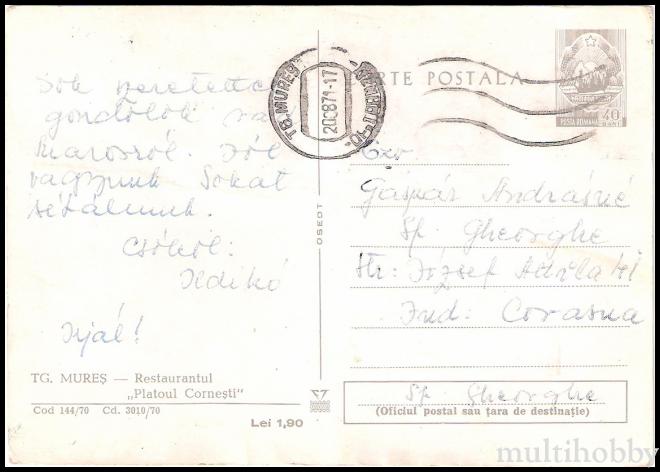 Sok szeretettel
gondolok rá
Marosról. Jól
vagyunk Sokat
sétálunk.
Csókol:
Ildikó
Írjál!
TG. MUREȘ — Restaurantul
„Platoul Cornești"
Cod 144/70 Cd. 3010/70
Lei 1,90
OSEDT
TG. MUREȘ
20.08.71-17
CARTE POSTALA
POSTA ROMANA
40
BANI
Gáspár Andrásné
Sf. Gheorghe
Str: József Attila
Jud: Covasna
Sf. Gheorghe
(Oficiul postal sau țara de destinație)
multihobby